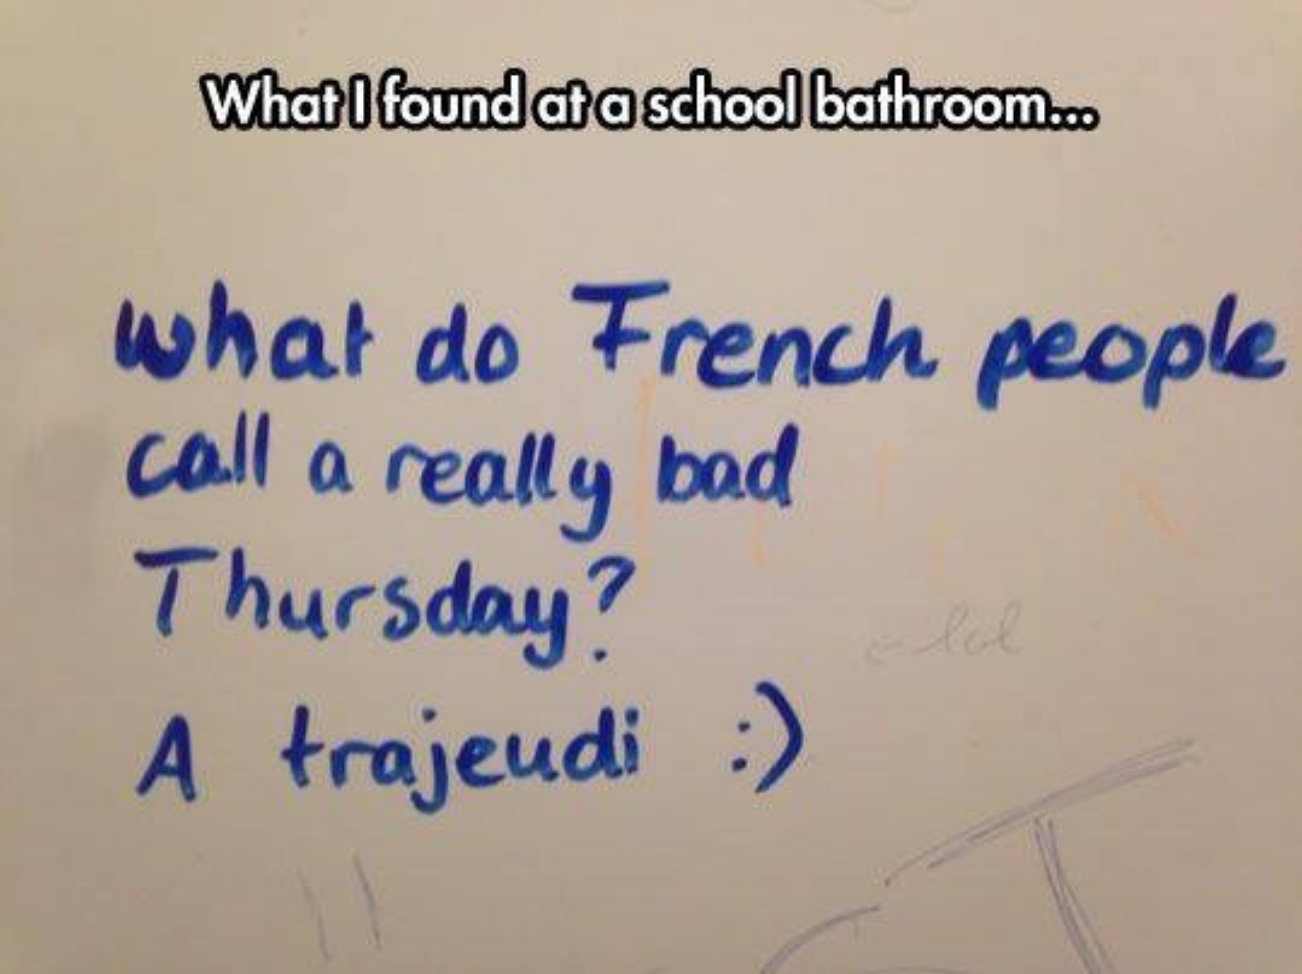 What I found at a school bathroom...
what do French people
call a really bad
Thursday?
lol
A trajeudi :)